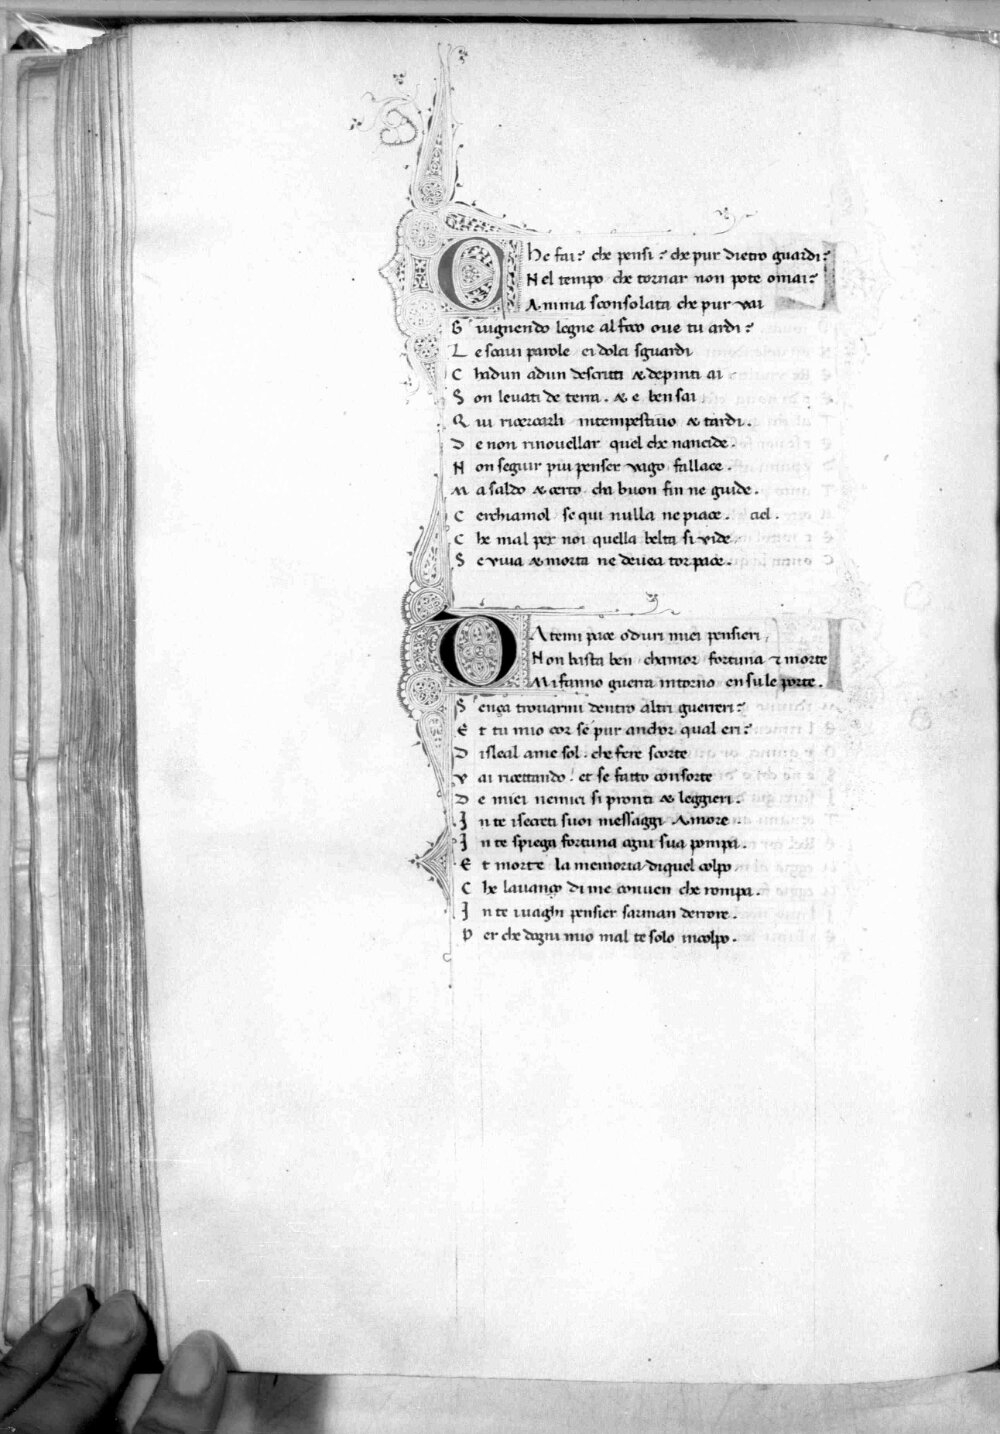 CHe fai? che pensi? che pur dietro guardi?
Nel tempo che tornar non pote omai?
Anima sconsolata che pur vai
Giugnendo legne al foco oue tu ardi?
Le soaui parole ei dolci sguardi
Chadun adun descritti & depinti ai
Son leuati de terra. & e ben sai
Qui ricercarli intempestiuo & tardi.
De non rinouellar quel che nancide.
Non seguir piu penser vago fallace.
Ma saldo & certo. cha buon fin ne guide.
Cerchiamol se qui nulla ne piace. ciel.
Che mal per noi quella belta si vide.
Se viua & morta ne deuea tor pace.
DAtemi pace o duri miei pensieri
Non basta ben chamor fortuna & morte
Mi fanno guerra intorno en su le porte.
Sença trouarmi dentro altri guerreri?
Et tu mio cor se pur anchor qual eri?
Disleal ame sol. che fere scorte
Vai ricettando! et se fatto consorte
De miei nemici si pronti & leggieri.
In te isecreti suoi messaggi Amore.
In te spiega fortuna ogni sua pompa.
Et morte la memoria diquel colpo
Che lauanço di me conuen che rompa.
In te iuaghi pensier sarman derrore.
Per che dogni mio mal te solo incolpo.